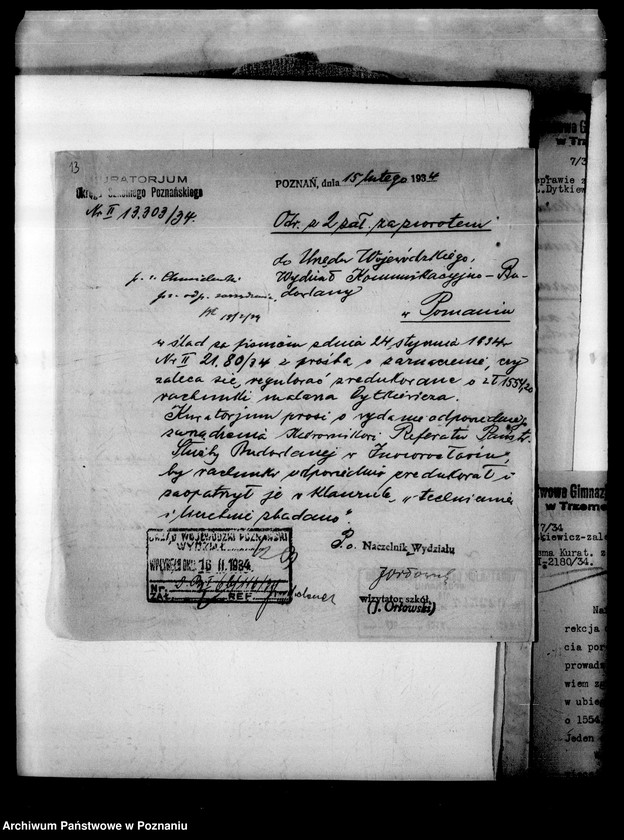 13
KURATORJUM
Okręgu Szkolnego Poznańskiego
Nr II 13.303/34.
POZNAŃ, dnia 15 lutego 1934
Odr. z 2 zał. za zwrotem
do Urzędu Wojewódzkiego,
Wydział Komunikacyjno-Bu-
dowlany
w Poznaniu
p. Chmielewski
po odp. zarządzenia
w ślad za pismem z dnia 24 stycznia 1934 r.
Nr II 21.80/34 z prośbą o zaznaczenie, czy
zaleca się, regulować zredukowane o zł 1554,20
rachunki malarza Dytkiewicza.
Kuratorjum prosi o wydanie odpowiedniego
zarządzenia Kierownikowi Referatu Państw.
Służby Budowlanej w Inowrocławiu,
by rachunki odpowiednio zredukował i
zaopatrzył je w klauzulę „technicznie
i rachunkowo zbadano".
P.o. Naczelnik Wydziału
wizytator szkół
(J. Orłowski)
URZĄD WOJEWÓDZKI POZNAŃSKI
WYDZIAŁ
WPŁYNĘŁO DNIA 16 II. 1934
Nr.
ZAŁ. REF.
7/3
w Trze
L.Dytkiew
w Trzeme
7/34
kiewicz-zale
ma Kurat. z
I-2180/34.
rekcja
cia por
prowadz
wiem zg
w ubieg
o 1554.
Jeden
Archiwum Państwowe w Poznaniu